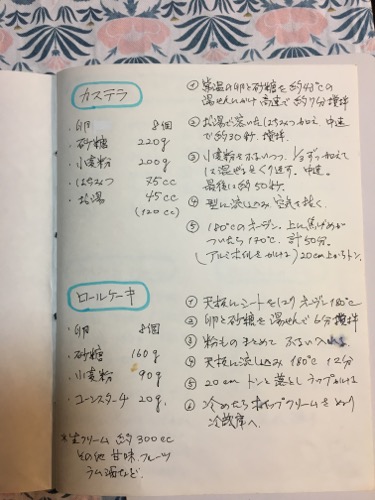 カステラ
・卵 8個
・砂糖 220g
・小麦粉 200g
・はちみつ 75cc
・お湯 45cc
(120cc)
① 常温の卵と砂糖を約43℃の
湯せんにかけ 高速で約7分撹拌
② お湯で溶いたはちみつ加え、中速
で約30秒 撹拌
③ 小麦粉をふるいつつ、1/3ずつ加えて
は混ぜをくり返す。中速。
最後に約50秒。
④ 型に流し込み 空気を抜く。
⑤ 180℃のオーブン。上に焦げめが
ついたら170℃。計50分。
(アルミホイルをかける) 20cm上からトン。
ロールケーキ
・卵 8個
・砂糖 160g
・小麦粉 90g
・コーンスターチ 20g.
*生クリーム 約300cc
その他 甘味、フルーツ
ラム酒など.
① 天板にシートをしき オーブン180℃
② 卵と砂糖を湯せんで6分撹拌
③ 粉ものまとめて ふるい入れる
④ 天板に流し込み 180℃ 12分
⑤ 20cm トンと落とし ラップかける
⑥ 冷めたら クリームをぬり
冷蔵庫へ。